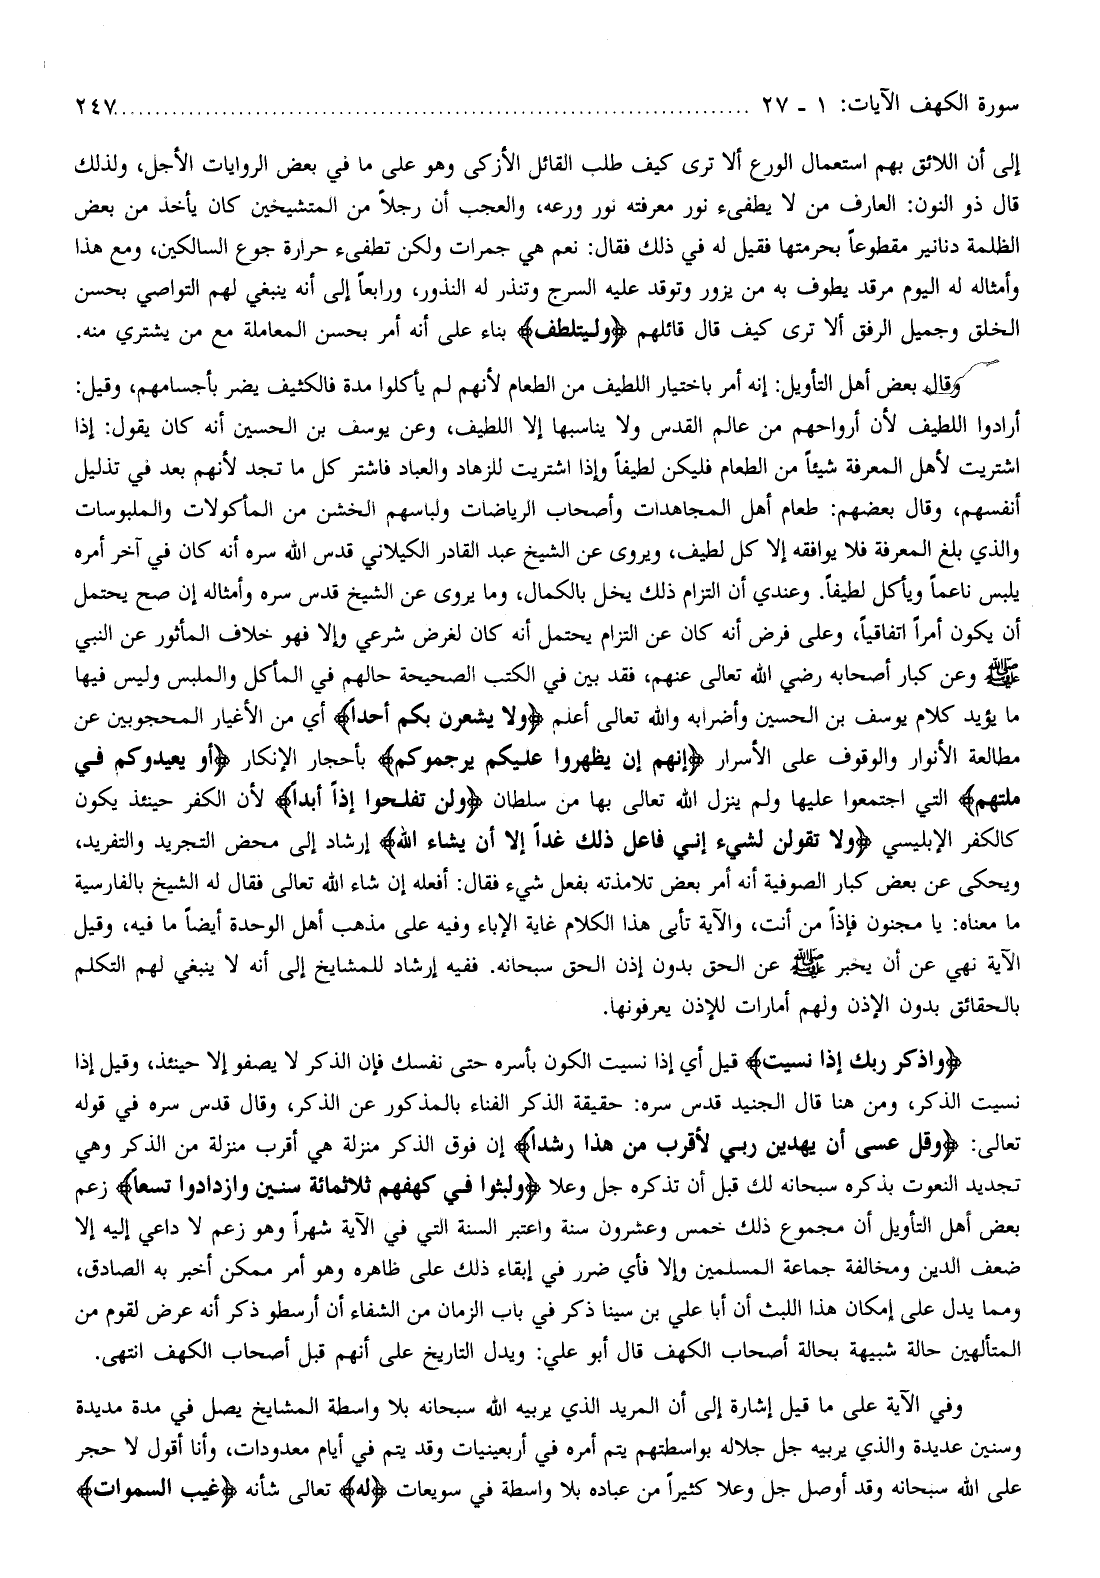 سورة الكهف الآيات: ١ - ٢٧ ........................................................................ ٢٤٧
إلى أن اللائق بهم استعمال الورع ألا ترى كيف طلب القائل الأزكى وهو على ما في بعض الروايات الأجل، ولذلك
قال ذو النون: العارف من لا يطفىء نور معرفته نور ورعه، والعجب أن رجلاً من المتشيخين كان يأخذ من بعض
الظلمة دنانير مقطوعاً بحرمتها فقيل له في ذلك فقال: نعم هي جمرات ولكن تطفىء حرارة جوع السالكين، ومع هذا
وأمثاله له اليوم مرقد يطوف به من يزور وتوقد عليه السرج وتنذر له النذور، ورابعاً إلى أنه ينبغي لهم التواصي بحسن
الخلق وجميل الرفق ألا ترى كيف قال قائلهم ﴿وليتلطف﴾ بناء على أنه أمر بحسن المعاملة مع من يشتري منه.
وقال بعض أهل التأويل: إنه أمر باختيار اللطيف من الطعام لأنهم لم يأكلوا مدة فالكثيف يضر بأجسامهم، وقيل:
أرادوا اللطيف لأن أرواحهم من عالم القدس ولا يناسبها إلا اللطيف، وعن يوسف بن الحسين أنه كان يقول: إذا
اشتريت لأهل المعرفة شيئاً من الطعام فليكن لطيفاً وإذا اشتريت للزهاد والعباد فاشتر كل ما تجد لأنهم بعد في تذليل
أنفسهم، وقال بعضهم: طعام أهل المجاهدات وأصحاب الرياضات ولباسهم الخشن من المأكولات والملبوسات
والذي بلغ المعرفة فلا يوافقه إلا كل لطيف، ويروى عن الشيخ عبد القادر الكيلاني قدس الله سره أنه كان في آخر أمره
يلبس ناعماً ويأكل لطيفاً. وعندي أن التزام ذلك يخل بالكمال، وما يروى عن الشيخ قدس سره وأمثاله إن صح يحتمل
أن يكون أمراً اتفاقياً، وعلى فرض أنه كان عن التزام يحتمل أنه كان لغرض شرعي وإلا فهو خلاف المأثور عن النبي
ﷺ وعن كبار أصحابه رضي الله تعالى عنهم، فقد بين في الكتب الصحيحة حالهم في المأكل والملبس وليس فيها
ما يؤيد كلام يوسف بن الحسين وأضرابه والله تعالى أعلم ﴿ولا يشعرن بكم أحداً﴾ أي من الأغيار المحجوبين عن
مطالعة الأنوار والوقوف على الأسرار ﴿إنهم إن يظهروا عليكم يرجموكم﴾ بأحجار الإنكار ﴿أو يعيدوكم في
ملتهم﴾ التي اجتمعوا عليها ولم ينزل الله تعالى بها من سلطان ﴿ولن تفلحوا إذاً أبداً﴾ لأن الكفر حينئذ يكون
كالكفر الإبليسي ﴿ولا تقولن لشيء إني فاعل ذلك غداً إلا أن يشاء الله﴾ إرشاد إلى محض التجريد والتفريد،
ويحكى عن بعض كبار الصوفية أنه أمر بعض تلامذته بفعل شيء فقال: أفعله إن شاء الله تعالى فقال له الشيخ بالفارسية
ما معناه: يا مجنون فإذاً من أنت، والآية تأبى هذا الكلام غاية الإباء وفيه على مذهب أهل الوحدة أيضاً ما فيه، وقيل
الآية نهي عن أن يخبر ﷺ عن الحق بدون إذن الحق سبحانه. ففيه إرشاد للمشايخ إلى أنه لا ينبغي لهم التكلم
بالحقائق بدون الإذن ولهم أمارات للإذن يعرفونها.
﴿واذكر ربك إذا نسيت﴾ قيل أي إذا نسيت الكون بأسره حتى نفسك فإن الذكر لا يصفو إلا حينئذ، وقيل إذا
نسيت الذكر، ومن هنا قال الجنيد قدس سره: حقيقة الذكر الفناء بالمذكور عن الذكر، وقال قدس سره في قوله
تعالى: ﴿وقل عسى أن يهدين ربي لأقرب من هذا رشداً﴾ إن فوق الذكر منزلة هي أقرب منزلة من الذكر وهي
تجديد النعوت بذكره سبحانه لك قبل أن تذكره جل وعلا ﴿ولبثوا في كهفهم ثلاثمائة سنين وازدادوا تسعاً﴾ زعم
بعض أهل التأويل أن مجموع ذلك خمس وعشرون سنة واعتبر السنة التي في الآية شهراً وهو زعم لا داعي إليه إلا
ضعف الدين ومخالفة جماعة المسلمين وإلا فأي ضرر في إبقاء ذلك على ظاهره وهو أمر ممكن أخبر به الصادق،
ومما يدل على إمكان هذا اللبث أن أبا علي بن سينا ذكر في باب الزمان من الشفاء أن أرسطو ذكر أنه عرض لقوم من
المتألهين حالة شبيهة بحالة أصحاب الكهف قال أبو علي: ويدل التاريخ على أنهم قبل أصحاب الكهف انتهى.
وفي الآية على ما قيل إشارة إلى أن المريد الذي يربيه الله سبحانه بلا واسطة المشايخ يصل في مدة مديدة
وسنين عديدة والذي يربيه جل جلاله بواسطتهم يتم أمره في أربعينيات وقد يتم في أيام معدودات، وأنا أقول لا حجر
على الله سبحانه وقد أوصل جل وعلا كثيراً من عباده بلا واسطة في سويعات ﴿له﴾ تعالى شأنه ﴿غيب السموات﴾